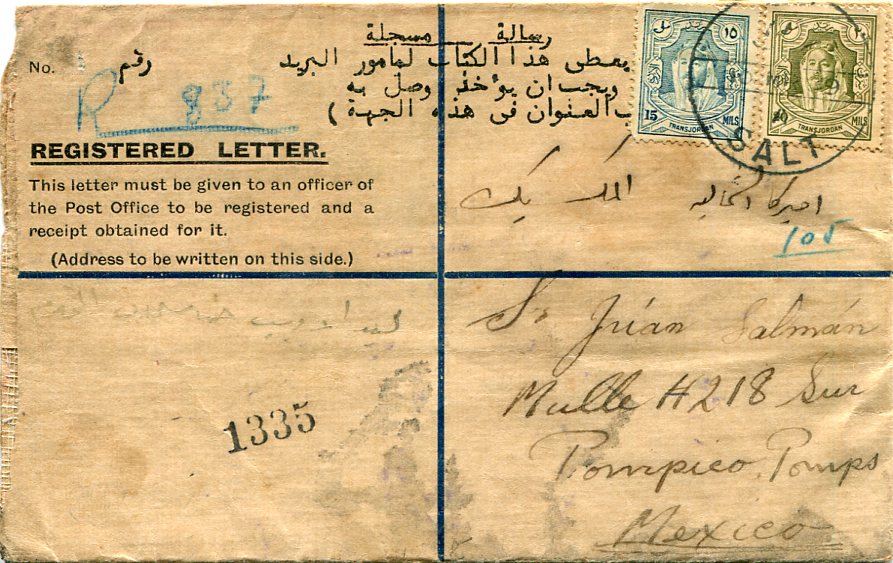 No.
رقم
R 837
رسالة مسجلة
يعطى هذا الكتاب لمامور البريد
ويجب ان يؤخذ وصل به
العنوان فى هذه الجهة )
REGISTERED LETTER.
This letter must be given to an officer of
the Post Office to be registered and a
receipt obtained for it.
(Address to be written on this side.)
١٥
15 MILS
TRANSJORDAN
٢٠
20 MILS
TRANSJORDAN
SALT
اميركا الشماليه المكسيك
105
1335
Sr Júan Salmán
Muelle H 218 Sur
Tompico, Tomps
Mexico